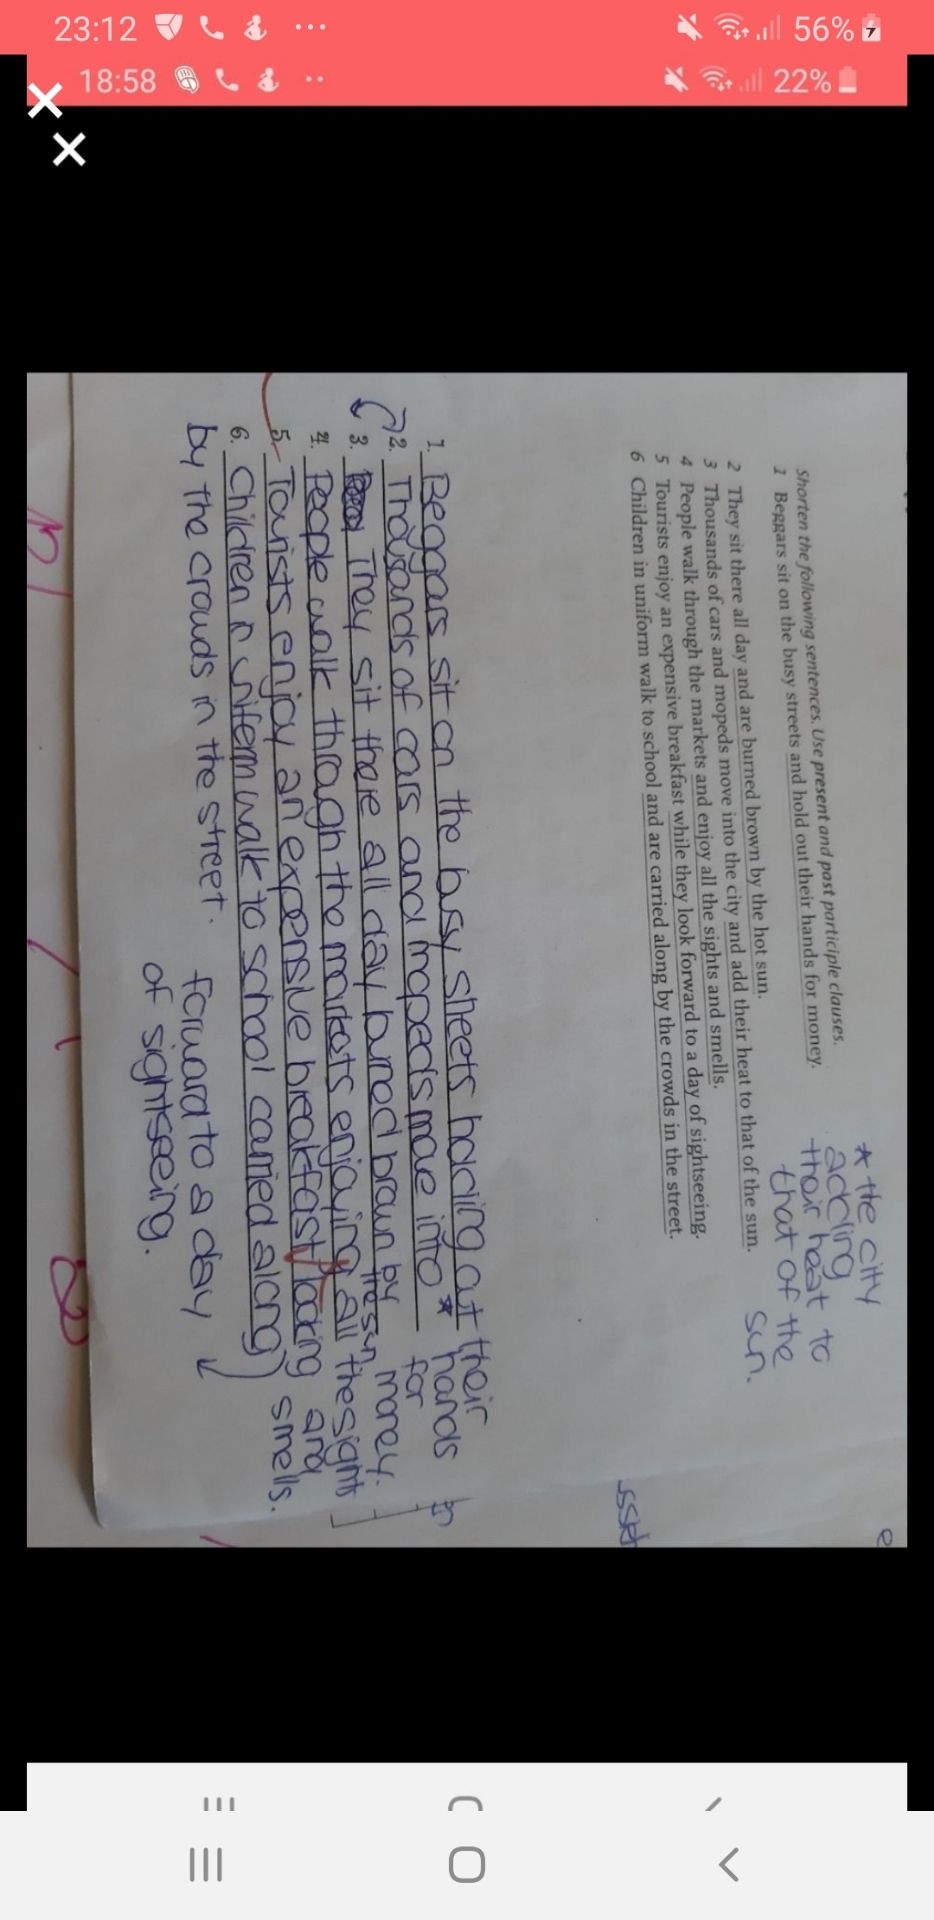 23:12
56%
18:58
22%
* the city
adding
their heat to
that of the
sun.
Shorten the following sentences. Use present and past participle clauses.
1 Beggars sit on the busy streets and hold out their hands for money.
2 They sit there all day and are burned brown by the hot sun.
3 Thousands of cars and mopeds move into the city and add their heat to that of the sun.
4 People walk through the markets and enjoy all the sights and smells.
5 Tourists enjoy an expensive breakfast while they look forward to a day of sightseeing.
6 Children in uniform walk to school and are carried along by the crowds in the street.
1. Beggars sit on the busy streets holding out their hands
for money.
2. Thousands of cars and mopeds move into *
3. They sit there all day burned brown by the sun
4. People walk through the markets enjoying all the sights
and smells.
5. Tourists enjoy an expensive breakfast looking
6. Children in uniform walk to school carried along
by the crowds in the street.
forward to a day
of sightseeing.